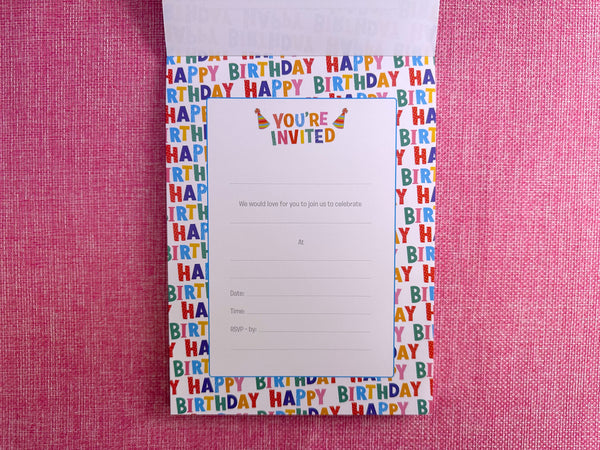 HAPPY BIRTHDAY HAPPY
BIRTHDAY HAPPY BIRTHDAY
YOU'RE
INVITED
We would love for you to join us to celebrate
At
Date:
Time:
RSVP - by:
HAPPY BIRTHDAY
BIRTHDAY HAPPY BIRTHDAY